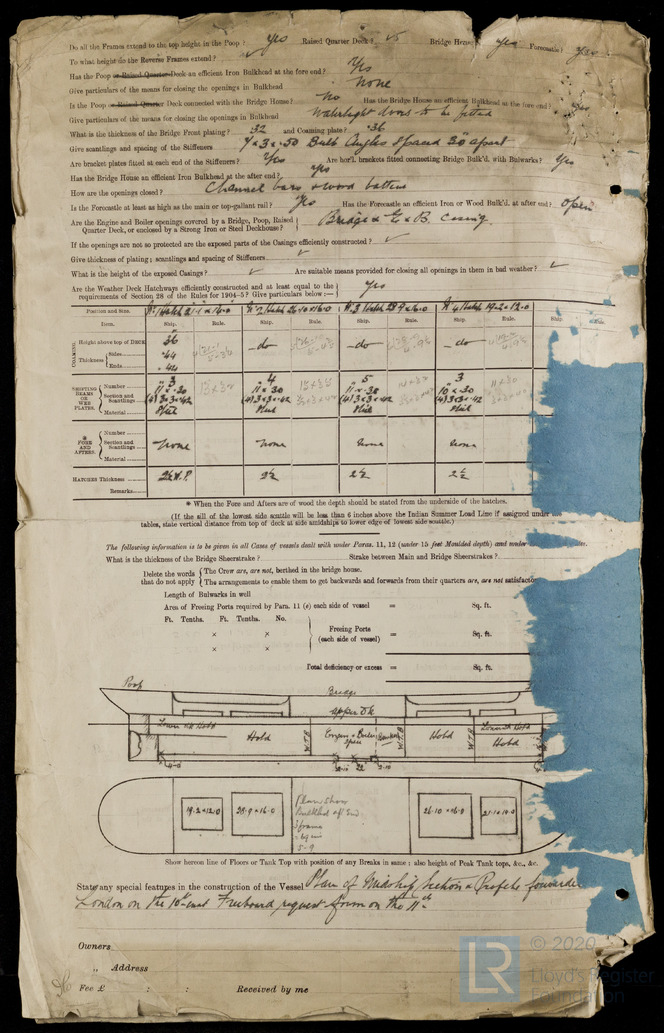 Do all the Frames extend to the top height in the Poop? yes Raised Quarter Deck? Bridge House? yes Forecastle? yes
To what height do the Reverse Frames extend?
Has the Poop or Raised Quarter Deck an efficient Iron Bulkhead at the fore end? Yes
Give particulars of the means for closing the openings in Bulkhead None
Is the Poop or Raised Quarter Deck connected with the Bridge House? no Has the Bridge House an efficient Bulkhead at the fore end? yes
Give particulars of the means for closing the openings in Bulkhead Watertight doors to be fitted
What is the thickness of the Bridge Front plating? .32 and Coaming plate? .36
Give scantlings and spacing of the Stiffeners 7 x 3 x .50 Bulb Angles spaced 30 apart
Are bracket plates fitted at each end of the Stiffeners? Yes Are hor'l. brackets fitted connecting Bridge Bulk'd. with Bulwarks? Yes
Has the Bridge House an efficient Iron Bulkhead at the after end? yes
How are the openings closed? Channel bars & wood battens
Is the Forecastle at least as high as the main or top-gallant rail? Yes Has the Forecastle an efficient Iron or Wood Bulk'd. at after end? open
Are the Engine and Boiler openings covered by a Bridge, Poop, Raised Quarter Deck, or enclosed by a Strong Iron or Steel Deckhouse? Bridge & E & B. Casing.
If the openings are not so protected are the exposed parts of the Casings efficiently constructed? ✓
Give thickness of plating; scantlings and spacing of Stiffeners ✓
What is the height of the exposed Casings? ✓ Are suitable means provided for closing all openings in them in bad weather? ✓
Are the Weather Deck Hatchways efficiently constructed and at least equal to the
requirements of Section 28 of the Rules for 1904-5? Give particulars below:— Yes
Position and Size. No 1 Hatch 21-1 x 16-0 No 2 Hatch 26.10 x 16.0 No 3 Hatch 28.9 x 16.0 No 4 Hatch 19.2 x 12.0
Item. Ship. Rule. Ship. Rule. Ship. Rule. Ship. Rule. Ship. Rule.
COAMING. Height above top of DECK 36 -do- -do- -do-
Thickness Sides .44
Ends .44
SHIFTING BEAMS OR WEB PLATES. Number 3 4 5 3
Section and Scantlings 11 x .30 11 x .30 11 x .30 10 x .30
(4) 3x3x.42 (4) 3x3x.42 (4) 3x3x.42 (4) 3x3x.42
Material Steel Steel Steel Steel
* FORE AND AFTERS. Number
Section and Scantlings None None None None
Material
HATCHES Thickness 2½ W.P. 2½ 2½ 2½
Remarks
* When the Fore and Afters are of wood the depth should be stated from the underside of the hatches.
(If the sill of the lowest side scuttle will be less than 6 inches above the Indian Summer Load Line if assigned under the
tables, state vertical distance from top of deck at side amidships to lower edge of lowest side scuttle.)
The following information is to be given in all Cases of vessels dealt with under Paras. 11, 12 (under 15 feet Moulded depth) and under
What is the thickness of the Bridge Sheerstrake? Strake between Main and Bridge Sheerstrakes?
Delete the words that do not apply The Crew are, are not, berthed in the bridge house.
The arrangements to enable them to get backwards and forwards from their quarters are, are not satisfactory
Length of Bulwarks in well
Area of Freeing Ports required by Para. 11 (e) each side of vessel = Sq. ft.
Ft. Tenths. Ft. Tenths. No.
× × Freeing Ports (each side of vessel) = Sq. ft.
× ×
Total deficiency or excess = Sq. ft.
Poop Bridge
Upper Dk
Hold W.T.B. Engine & Boiler Space Bunker W.T.B. Hold W.T.B. Hold
19.2 x 12.0 28.9 x 16.0 26.10 x 16.0 21.1 x 16.0
Plan show
Bulkhead aft End
3 frames
5-9
Show hereon line of Floors or Tank Top with position of any Breaks in same; also height of Peak Tank tops, &c., &c.
State any special features in the construction of the Vessel Plan of Midship Section & Profile forwarded
London on the 10th inst Freeboard request form on the 11th
Owners
„ Address
Fee £ : : Received by me
LR © 2020
Lloyd's Register
Foundation